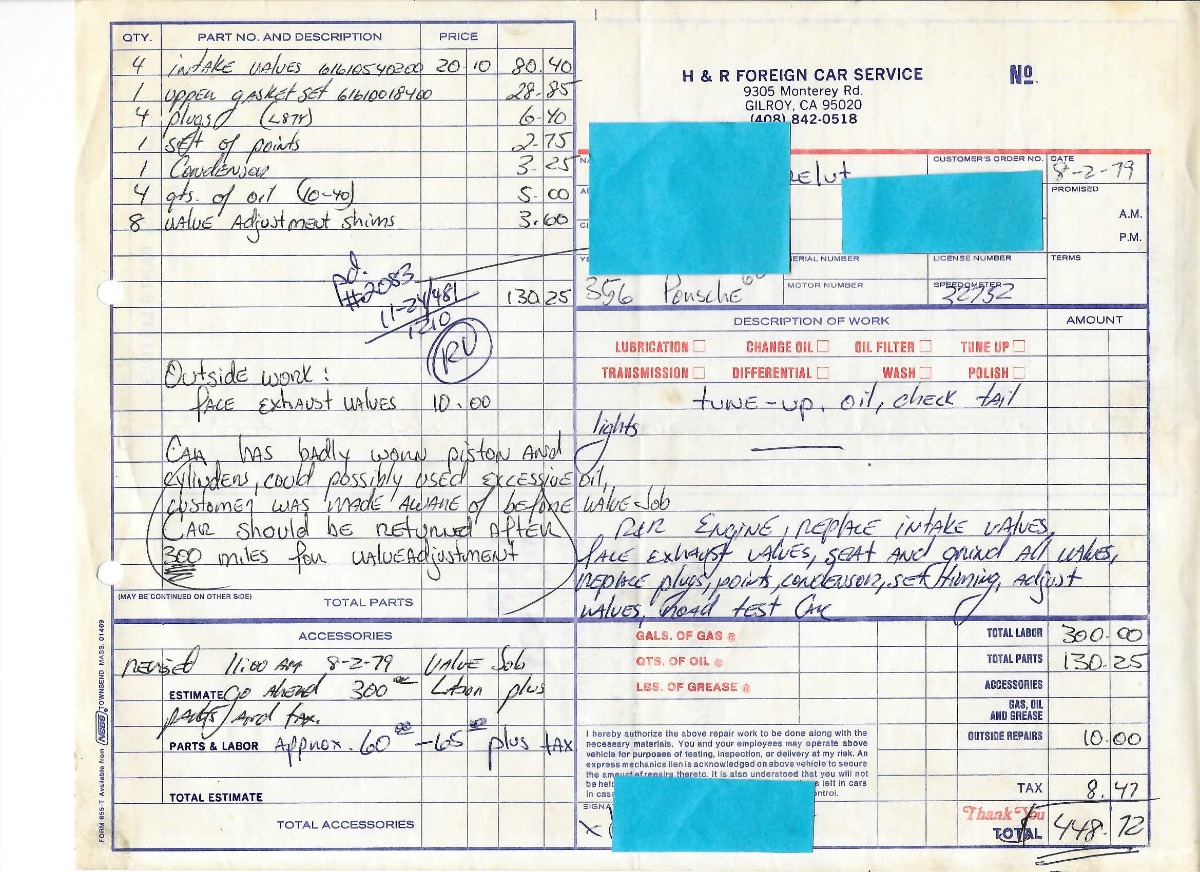 QTY. PART NO. AND DESCRIPTION PRICE
4 intake values 61610540200 20 10 80.40
1 upper gasket set 61610018400 28-85
4 plugs (L87Y) 6-40
1 set of points 2-75
1 Condensor 3-25
4 qts. of oil (10-40) 5-00
8 value Adjustment shims 3.60
pd.
#2083
11-24/481
1210
130.25
RV
Outside work:
face exhaust values 10.00
CAR has badly worn piston And
cylinders, could possibly used excessive oil,
customer was made aware of before value Job
CAR should be returned After
300 miles for value Adjustment
(MAY BE CONTINUED ON OTHER SIDE) TOTAL PARTS
ACCESSORIES
revised 11:00 AM 8-2-79 value Job
ESTIMATE Go Ahead 300 Labor plus
parts and tax.
PARTS & LABOR Approx. 60 00 -65 plus tax
TOTAL ESTIMATE
TOTAL ACCESSORIES
FORM 855-T Available from NEBS TOWNSEND MASS. 01469
H & R FOREIGN CAR SERVICE
9305 Monterey Rd.
GILROY, CA 95020
(408) 842-0518
No.
CUSTOMER'S ORDER NO. DATE
8-2-79
PROMISED
A.M.
P.M.
SERIAL NUMBER LICENSE NUMBER TERMS
356 Porsche MOTOR NUMBER SPEEDOMETER
32732
DESCRIPTION OF WORK AMOUNT
LUBRICATION CHANGE OIL OIL FILTER TUNE UP
TRANSMISSION DIFFERENTIAL WASH POLISH
tune-up, oil, check tail
lights
R&R Engine, replace intake values,
face exhaust values, seat and grind all values,
replace plugs, points, condensor, set timing, adjust
values, road test Car
GALS. OF GAS @
QTS. OF OIL @
LBS. OF GREASE @
TOTAL LABOR 300.00
TOTAL PARTS 130.25
ACCESSORIES
GAS, OIL
AND GREASE
OUTSIDE REPAIRS 10.00
TAX 8.47
Thank You
TOTAL 448.72
I hereby authorize the above repair work to be done along with the
necessary materials. You and your employees may operate above
vehicle for purposes of testing, inspection, or delivery at my risk. An
express mechanics lien is acknowledged on above vehicle to secure
the amount of repairs thereto. It is also understood that you will not
be held
left in cars
in case
control.
X